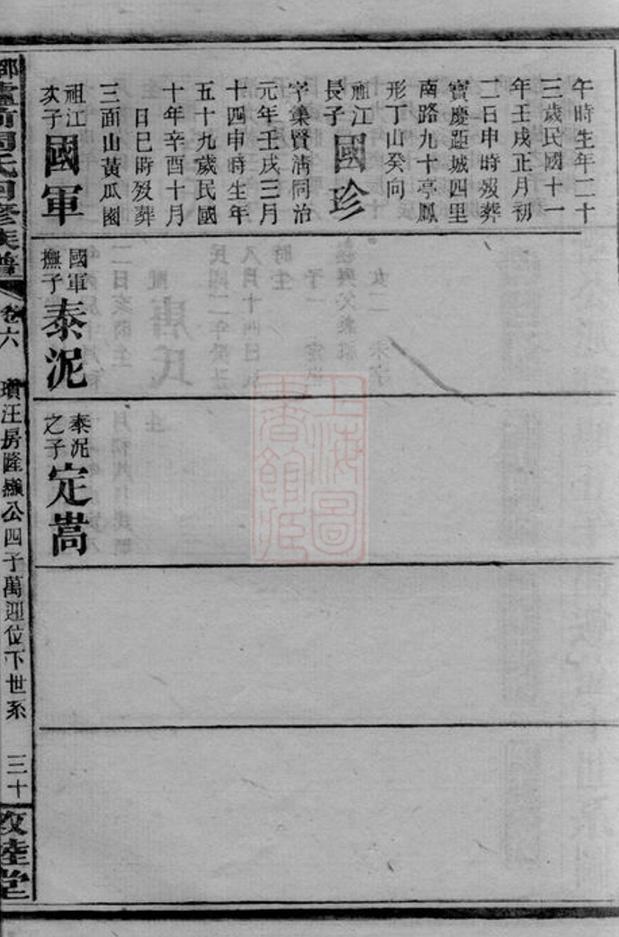 午時生年二十
三歲民國十一
年壬戌正月初
二日申時歿葬
寶慶距城四里
南路九十亭鳳
形丁山癸向
祖江
長子
國珍
字集賢清同治
元年壬戌三月
十四申時生年
五十九歲民國
十年辛酉十月
日巳時歿葬
三面山黃瓜園
祖江
次子
國軍
國軍
撫子
泰泥
泰泥
之子
定嵩
氏四修族譜
卷六
瓚汪房隆 公四子萬迎位下世系
三十
敦睦堂
上海圖
書館藏